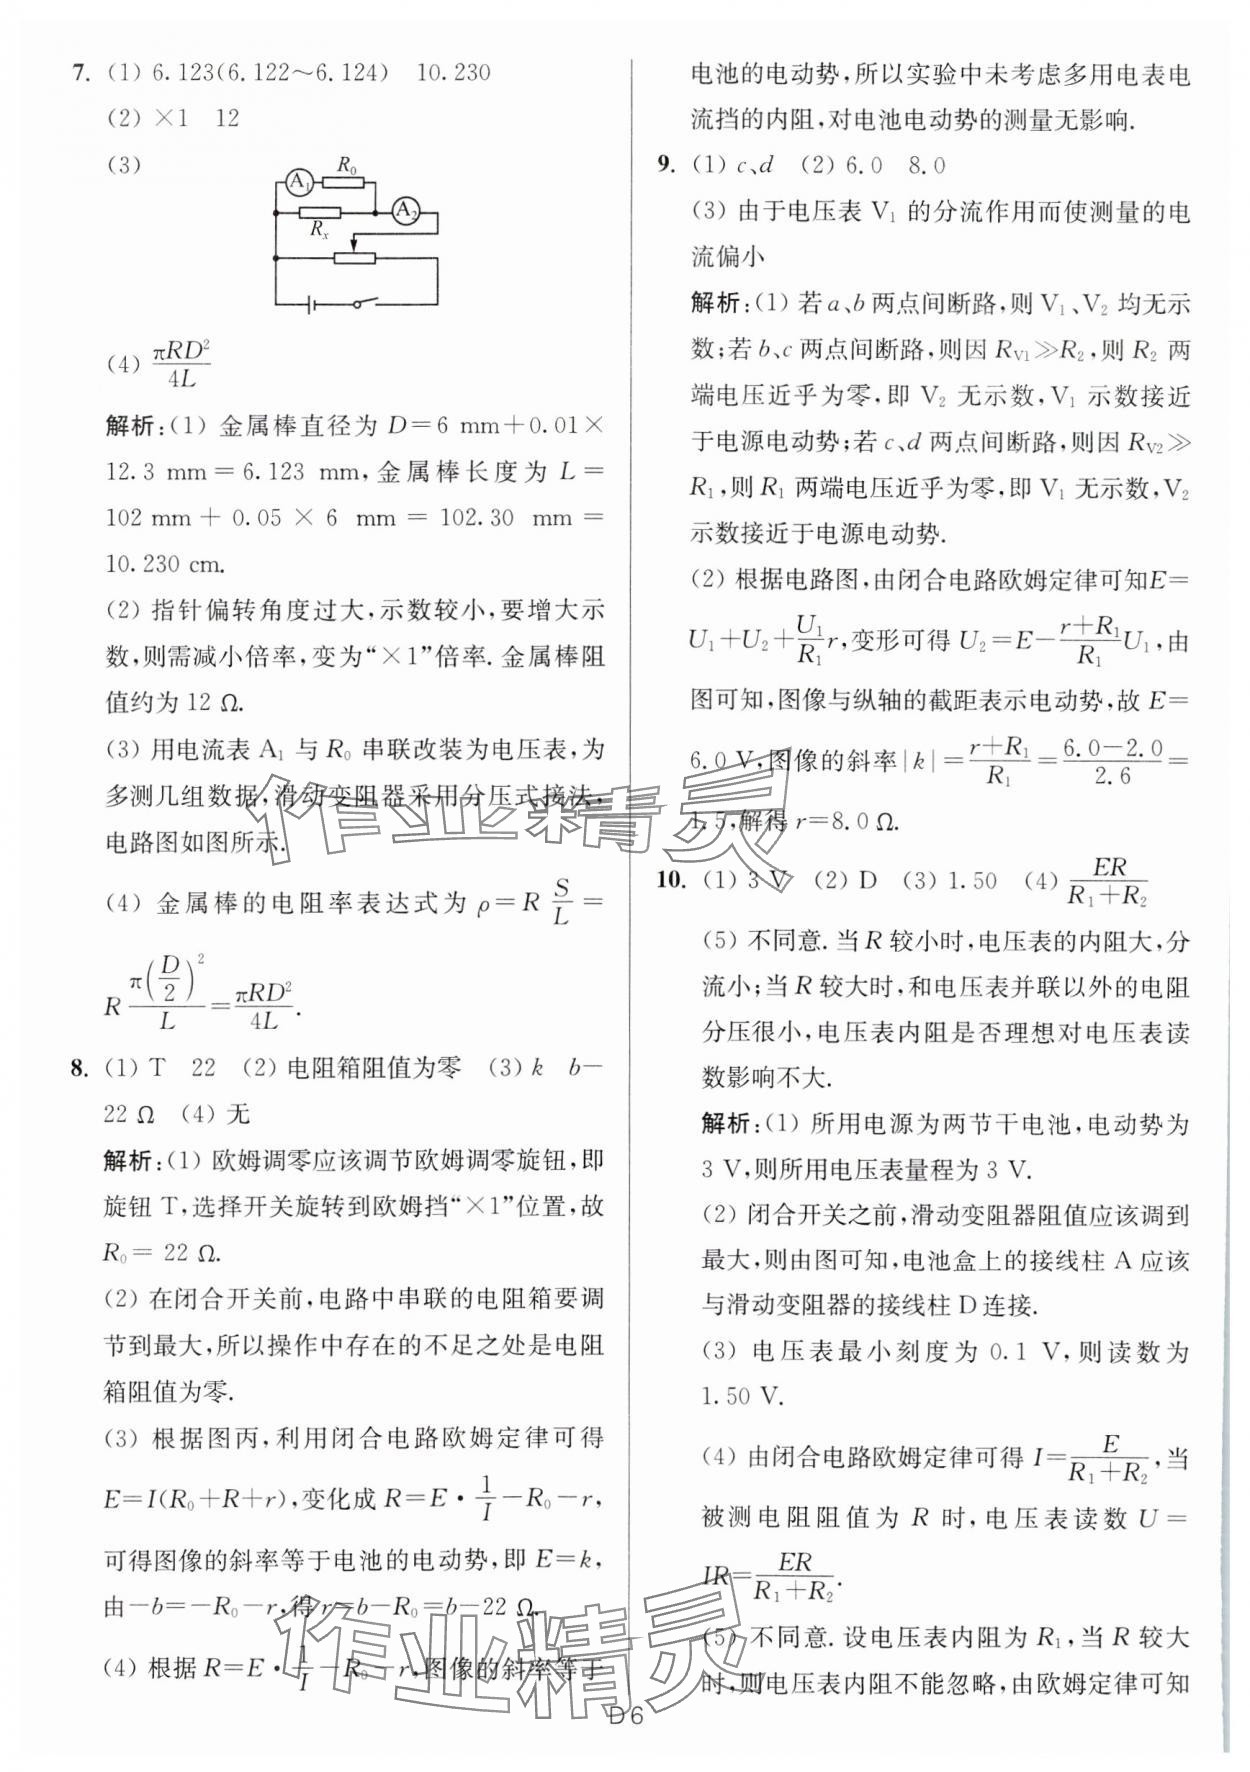 7. (1) 6.123(6.122～6.124)　10.230
(2) ×1　12
(3)
A₁ R₀
A₂
Rₓ
(4) πRD²/4L
解析:(1) 金属棒直径为 D=6 mm+0.01×
12.3 mm=6.123 mm,金属棒长度为 L=
102 mm+0.05×6 mm=102.30 mm=
10.230 cm.
(2) 指针偏转角度过大,示数较小,要增大示
数,则需减小倍率,变为“×1”倍率.金属棒阻
值约为 12 Ω.
(3) 用电流表 A₁ 与 R₀ 串联改装为电压表,为
多测几组数据,滑动变阻器采用分压式接法,
电路图如图所示.
(4) 金属棒的电阻率表达式为 ρ=R S/L=
R π(D/2)²/L=πRD²/4L.
8. (1) T　22　(2) 电阻箱阻值为零　(3) k　b−
22 Ω　(4) 无
解析:(1) 欧姆调零应该调节欧姆调零旋钮,即
旋钮 T,选择开关旋转到欧姆挡“×1”位置,故
R₀= 22 Ω.
(2) 在闭合开关前,电路中串联的电阻箱要调
节到最大,所以操作中存在的不足之处是电阻
箱阻值为零.
(3) 根据图丙,利用闭合电路欧姆定律可得
E=I(R₀+R+r),变化成 R=E·1/I−R₀−r,
可得图像的斜率等于电池的电动势,即 E=k,
由−b=−R₀−r,得 r=b−R₀=b−22 Ω.
(4) 根据 R=E·1/I−R₀−r,图像的斜率等于
电池的电动势,所以实验中未考虑多用电表电
流挡的内阻,对电池电动势的测量无影响.
9. (1) c、d　(2) 6.0　8.0
(3) 由于电压表 V₁ 的分流作用而使测量的电
流偏小
解析:(1) 若 a、b 两点间断路,则 V₁、V₂ 均无示
数;若 b、c 两点间断路,则因 R_V1≫R₂,则 R₂ 两
端电压近乎为零,即 V₂ 无示数,V₁ 示数接近
于电源电动势;若 c、d 两点间断路,则因 R_V2≫
R₁,则 R₁ 两端电压近乎为零,即 V₁ 无示数,V₂
示数接近于电源电动势.
(2) 根据电路图,由闭合电路欧姆定律可知E=
U₁+U₂+U₁/R₁ r,变形可得 U₂=E−(r+R₁)/R₁ U₁,由
图可知,图像与纵轴的截距表示电动势,故 E=
6.0 V,图像的斜率|k|=(r+R₁)/R₁=(6.0−2.0)/2.6=
1.5,解得 r=8.0 Ω.
10. (1) 3 V　(2) D　(3) 1.50　(4) ER/(R₁+R₂)
(5) 不同意.当 R 较小时,电压表的内阻大,分
流小;当 R 较大时,和电压表并联以外的电阻
分压很小,电压表内阻是否理想对电压表读
数影响不大.
解析:(1) 所用电源为两节干电池,电动势为
3 V,则所用电压表量程为 3 V.
(2) 闭合开关之前,滑动变阻器阻值应该调到
最大,则由图可知,电池盒上的接线柱 A 应该
与滑动变阻器的接线柱 D 连接.
(3) 电压表最小刻度为 0.1 V,则读数为
1.50 V.
(4) 由闭合电路欧姆定律可得 I=E/(R₁+R₂),当
被测电阻阻值为 R 时,电压表读数 U=
IR=ER/(R₁+R₂).
(5) 不同意.设电压表内阻为 R₁,当 R 较大
时,则电压表内阻不能忽略,由欧姆定律可知
作业精灵
作业精灵
D6